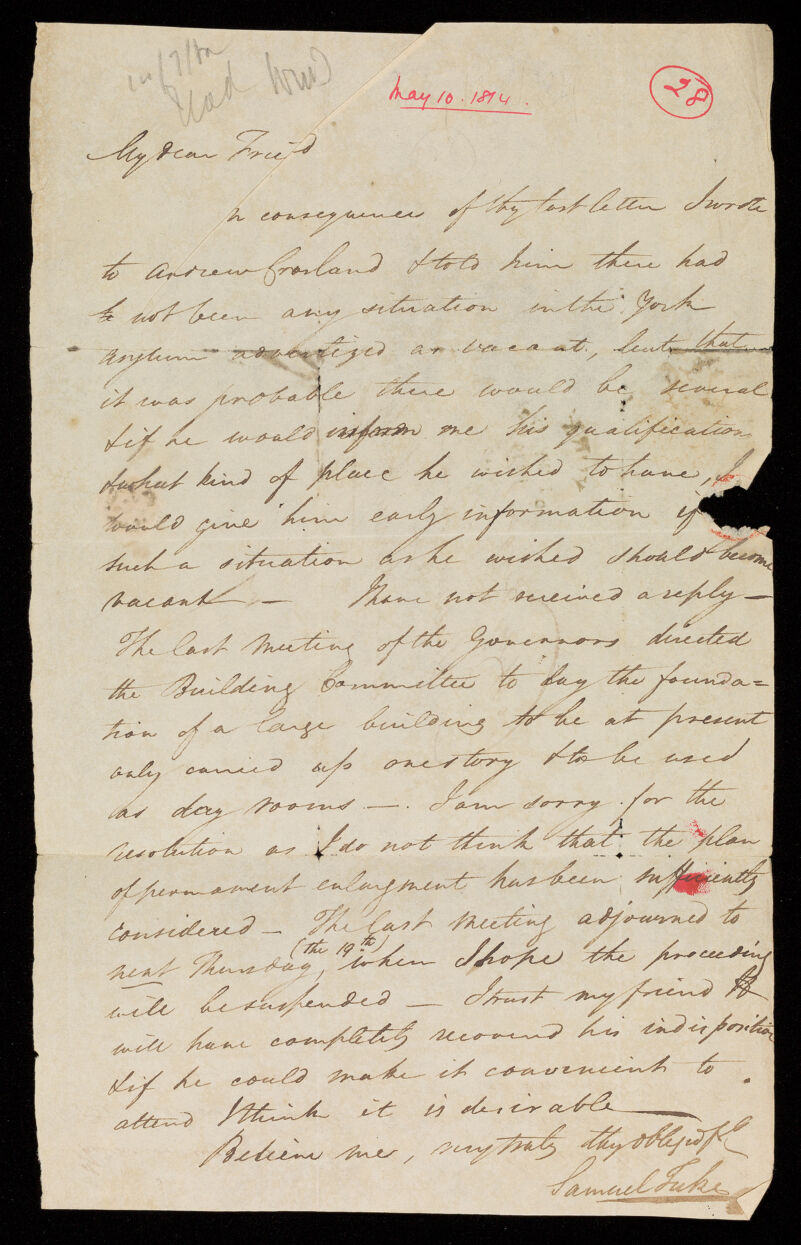 May 10. 1814.
28
My dear Friend
In consequence of thy last letter I wrote
to Andrew Crosland & told him there had
not been any situation in the York
asylum advertized as vacant, but that
it was probable there would be several
& if he would inform me his qualification
& what kind of place he wished to have, I
would give him early information if
such a situation as he wished should become
vacant — I have not received a reply —
The last Meeting of the Governors directed
the Building Committee to lay the founda=
tion of a large building to be at present
only carried up one story & to be used
as day rooms —. I am sorry for the
resolution as I do not think that the plan
of permanent enlargment has been sufficiently
considered — The last Meeting adjourned to
next Thursday (the 19th) when I hope the proceeding
will be suspended — I trust my friend
will have completely recoverd his indisposition
& if he could make it convenient to
attend I think it is desirable —
Believe me, very truly thy obliged fd
Samuel Tuke